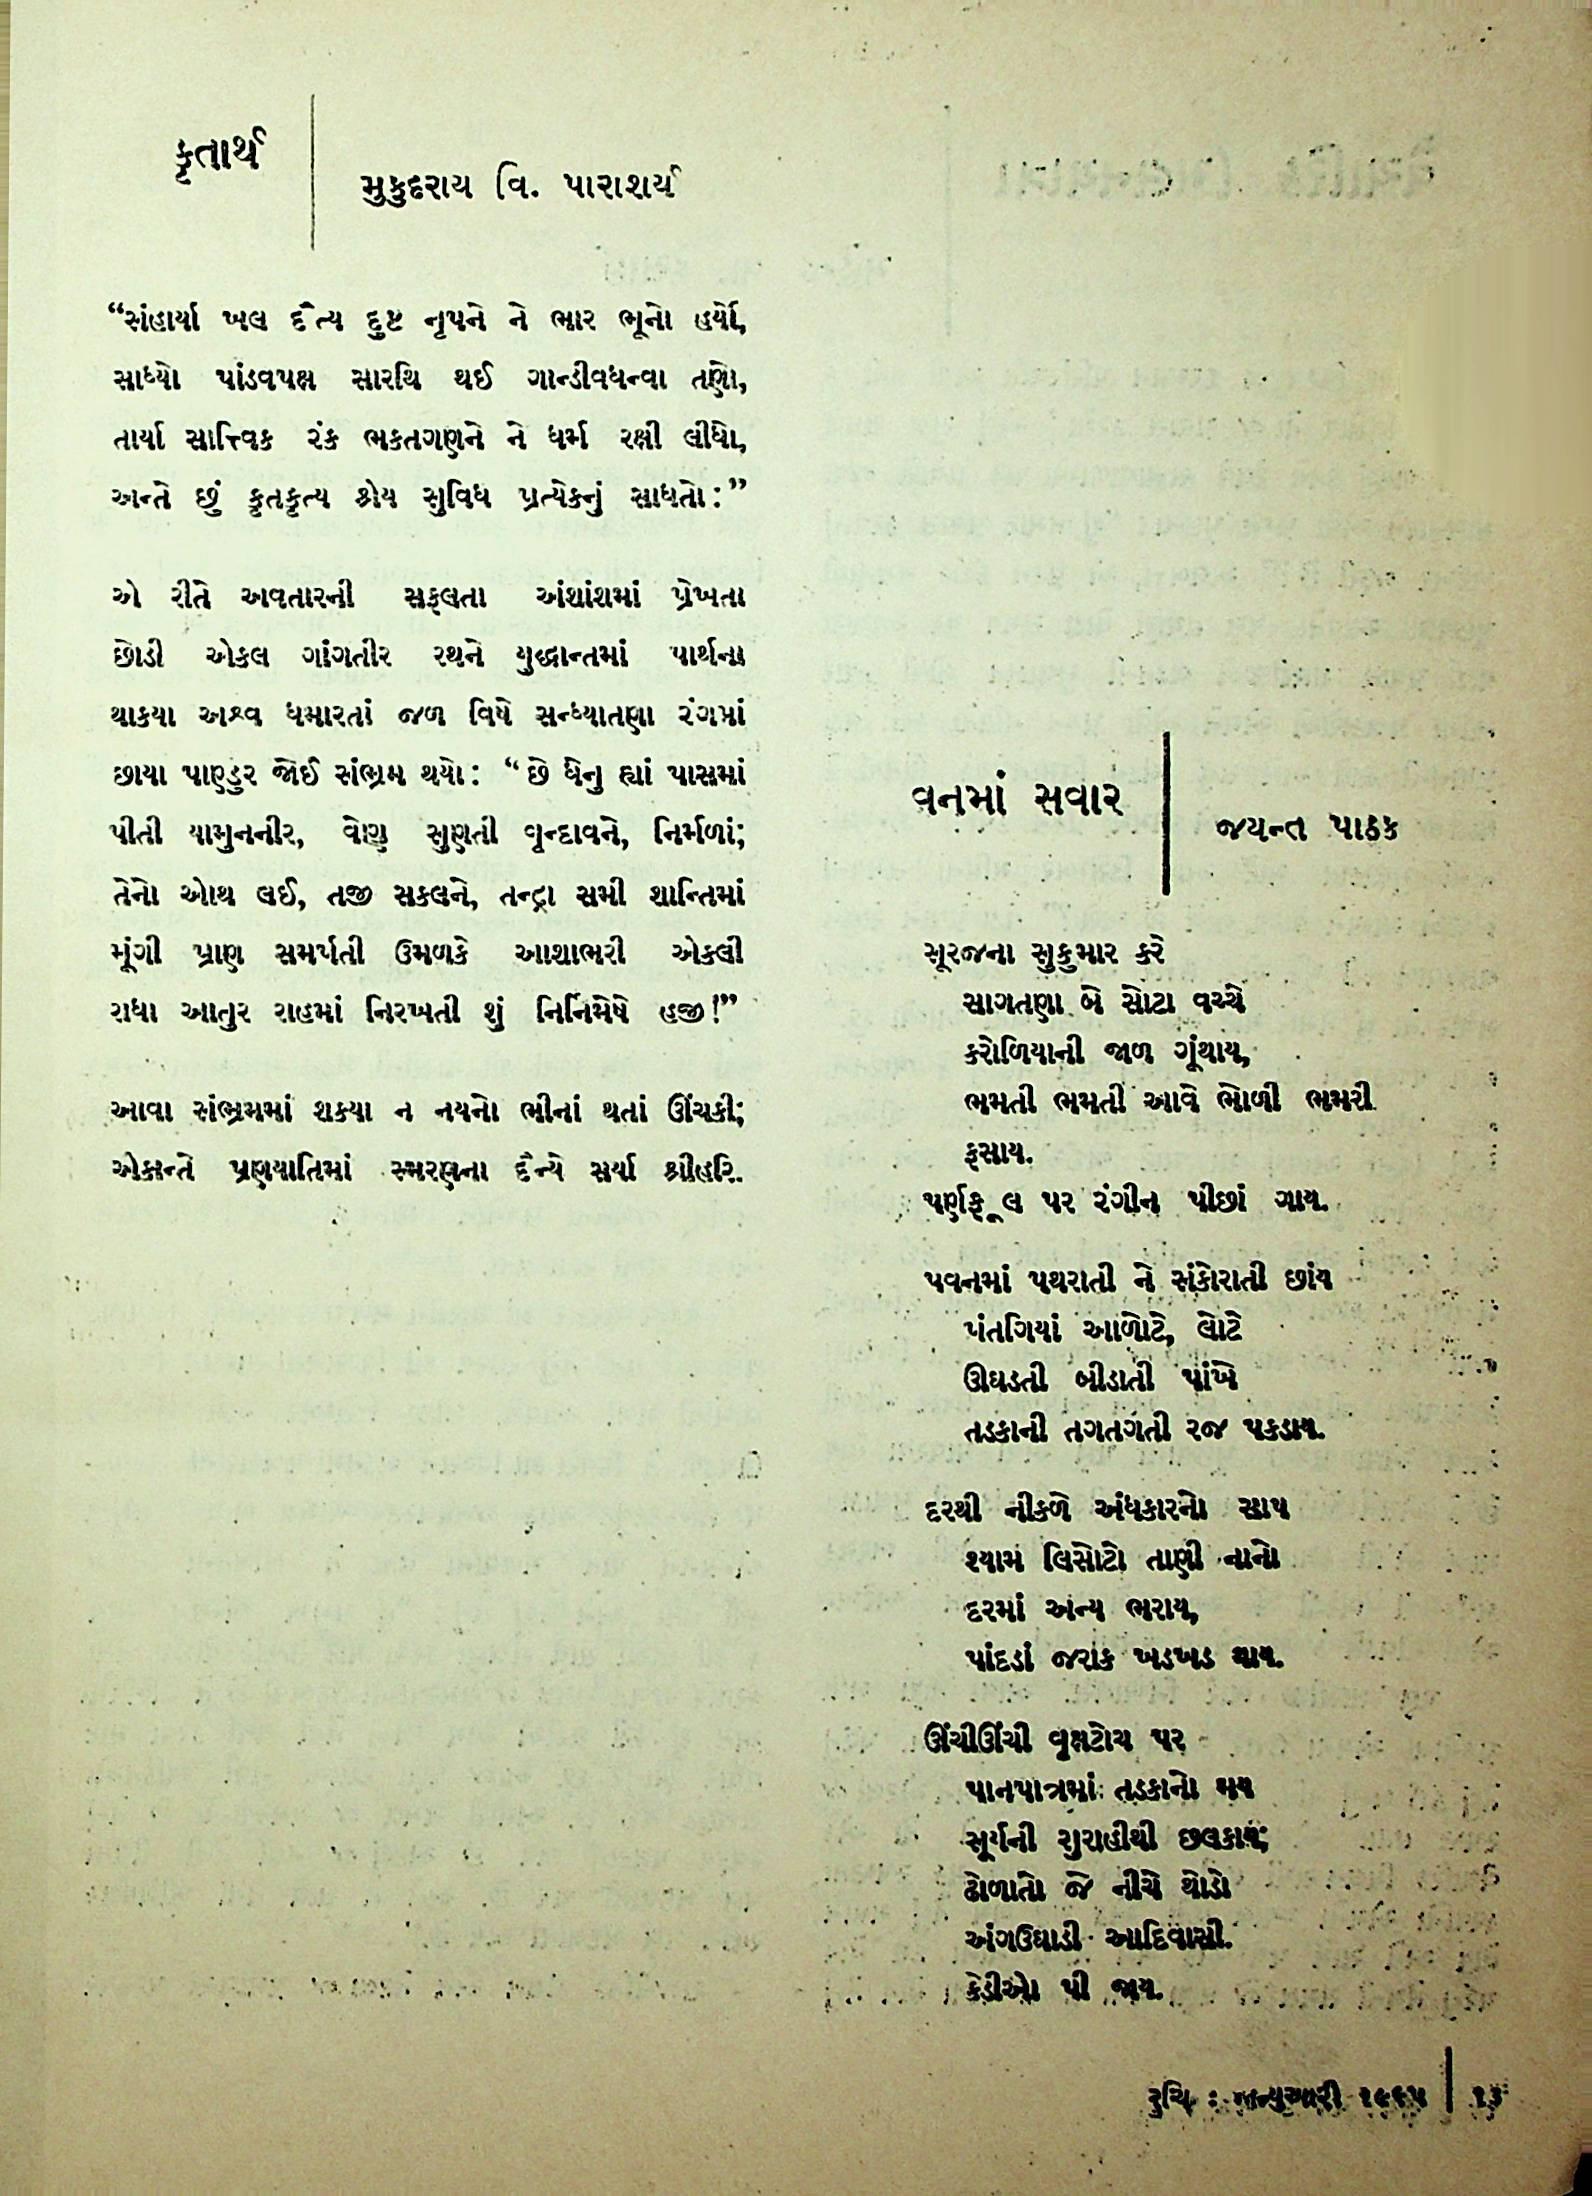 કૃતાર્થ
મુકુદરાય વિ. પારાશર્ય
“સંહાર્યા ખલ દૈત્ય દુષ્ટ નૃપને ને ભાર ભૂનો હર્યો,
સાધ્યો પાંડવપક્ષ સારથિ થઈ ગાન્ડીવધન્વા તણો,
તાર્યા સાત્ત્વિક રંક ભકતગણને ને ધર્મ રક્ષી લીધો,
અન્તે છું કૃતકૃત્ય શ્રેય સુવિધ પ્રત્યેકનું સાધતો:”
એ રીતે અવતારની સફલતા અંશાંશમાં પ્રેખતા
છોડી એકલ ગાંગતીર રથને યુદ્ધાન્તમાં પાર્થના
થાકયા અશ્વ ધમારતાં જળ વિષે સન્ધ્યાતણા રંગમાં
છાયા પાણ્ડુર જોઈ સંભ્રમ થયો: “છે ધેનુ હ્યાં પાસમાં
પીતી યામુનનીર, વેણુ સુણતી વૃન્દાવને, નિર્મળાં;
તેનો ઓથ લઈ, તજી સકલને, તન્દ્રા સમી શાન્તિમાં
મૂંગી પ્રાણ સમર્પતી ઉમળકે આશાભરી એકલી
રાધા આતુર રાહમાં નિરખતી શું નિર્નિમેષે હજી!”
આવા સંભ્રમમાં શક્યા ન નયનો ભીનાં થતાં ઊંચકી;
એકાન્તે પ્રણયાર્તિમાં સ્મરણના દૈન્યે સર્યા શ્રીહરિ.
વનમાં સવાર
જયન્ત પાઠક
સૂરજના સુકુમાર કરે
સાગતણા બે સોટા વચ્ચે
કરોળિયાની જાળ ગૂંથાય,
ભમતી ભમતી આવે ભોળી ભમરી
ફસાય.
પર્ણફૂલ પર રંગીન પીછાં ગાય.
પવનમાં પથરાતી ને સંકોરાતી છાંય
પંતગિયાં આળોટે, લોટે
ઊઘડતી બીડાતી પાંખે
તડકાની તગતગતી રજ પકડાય.
દરથી નીકળે અંધકારનો સાપ
શ્યામ લિસોટો તાણી નાનો
દરમાં અન્ય ભરાય,
પાંદડાં જરાક ખડખડ થાય.
ઊંચીઊંચી વૃક્ષટોચ પર
પાનપાત્રમાં તડકાનો મય
સૂર્યની સુરાહીથી છલકાય;
ઢોળાતો જે નીચે થોડો
અંગઉઘાડી આદિવાસી
કેડીઓ પી જાય.
રુચિ : જાન્યુઆરી ૧૯૬૫ | ૧૩